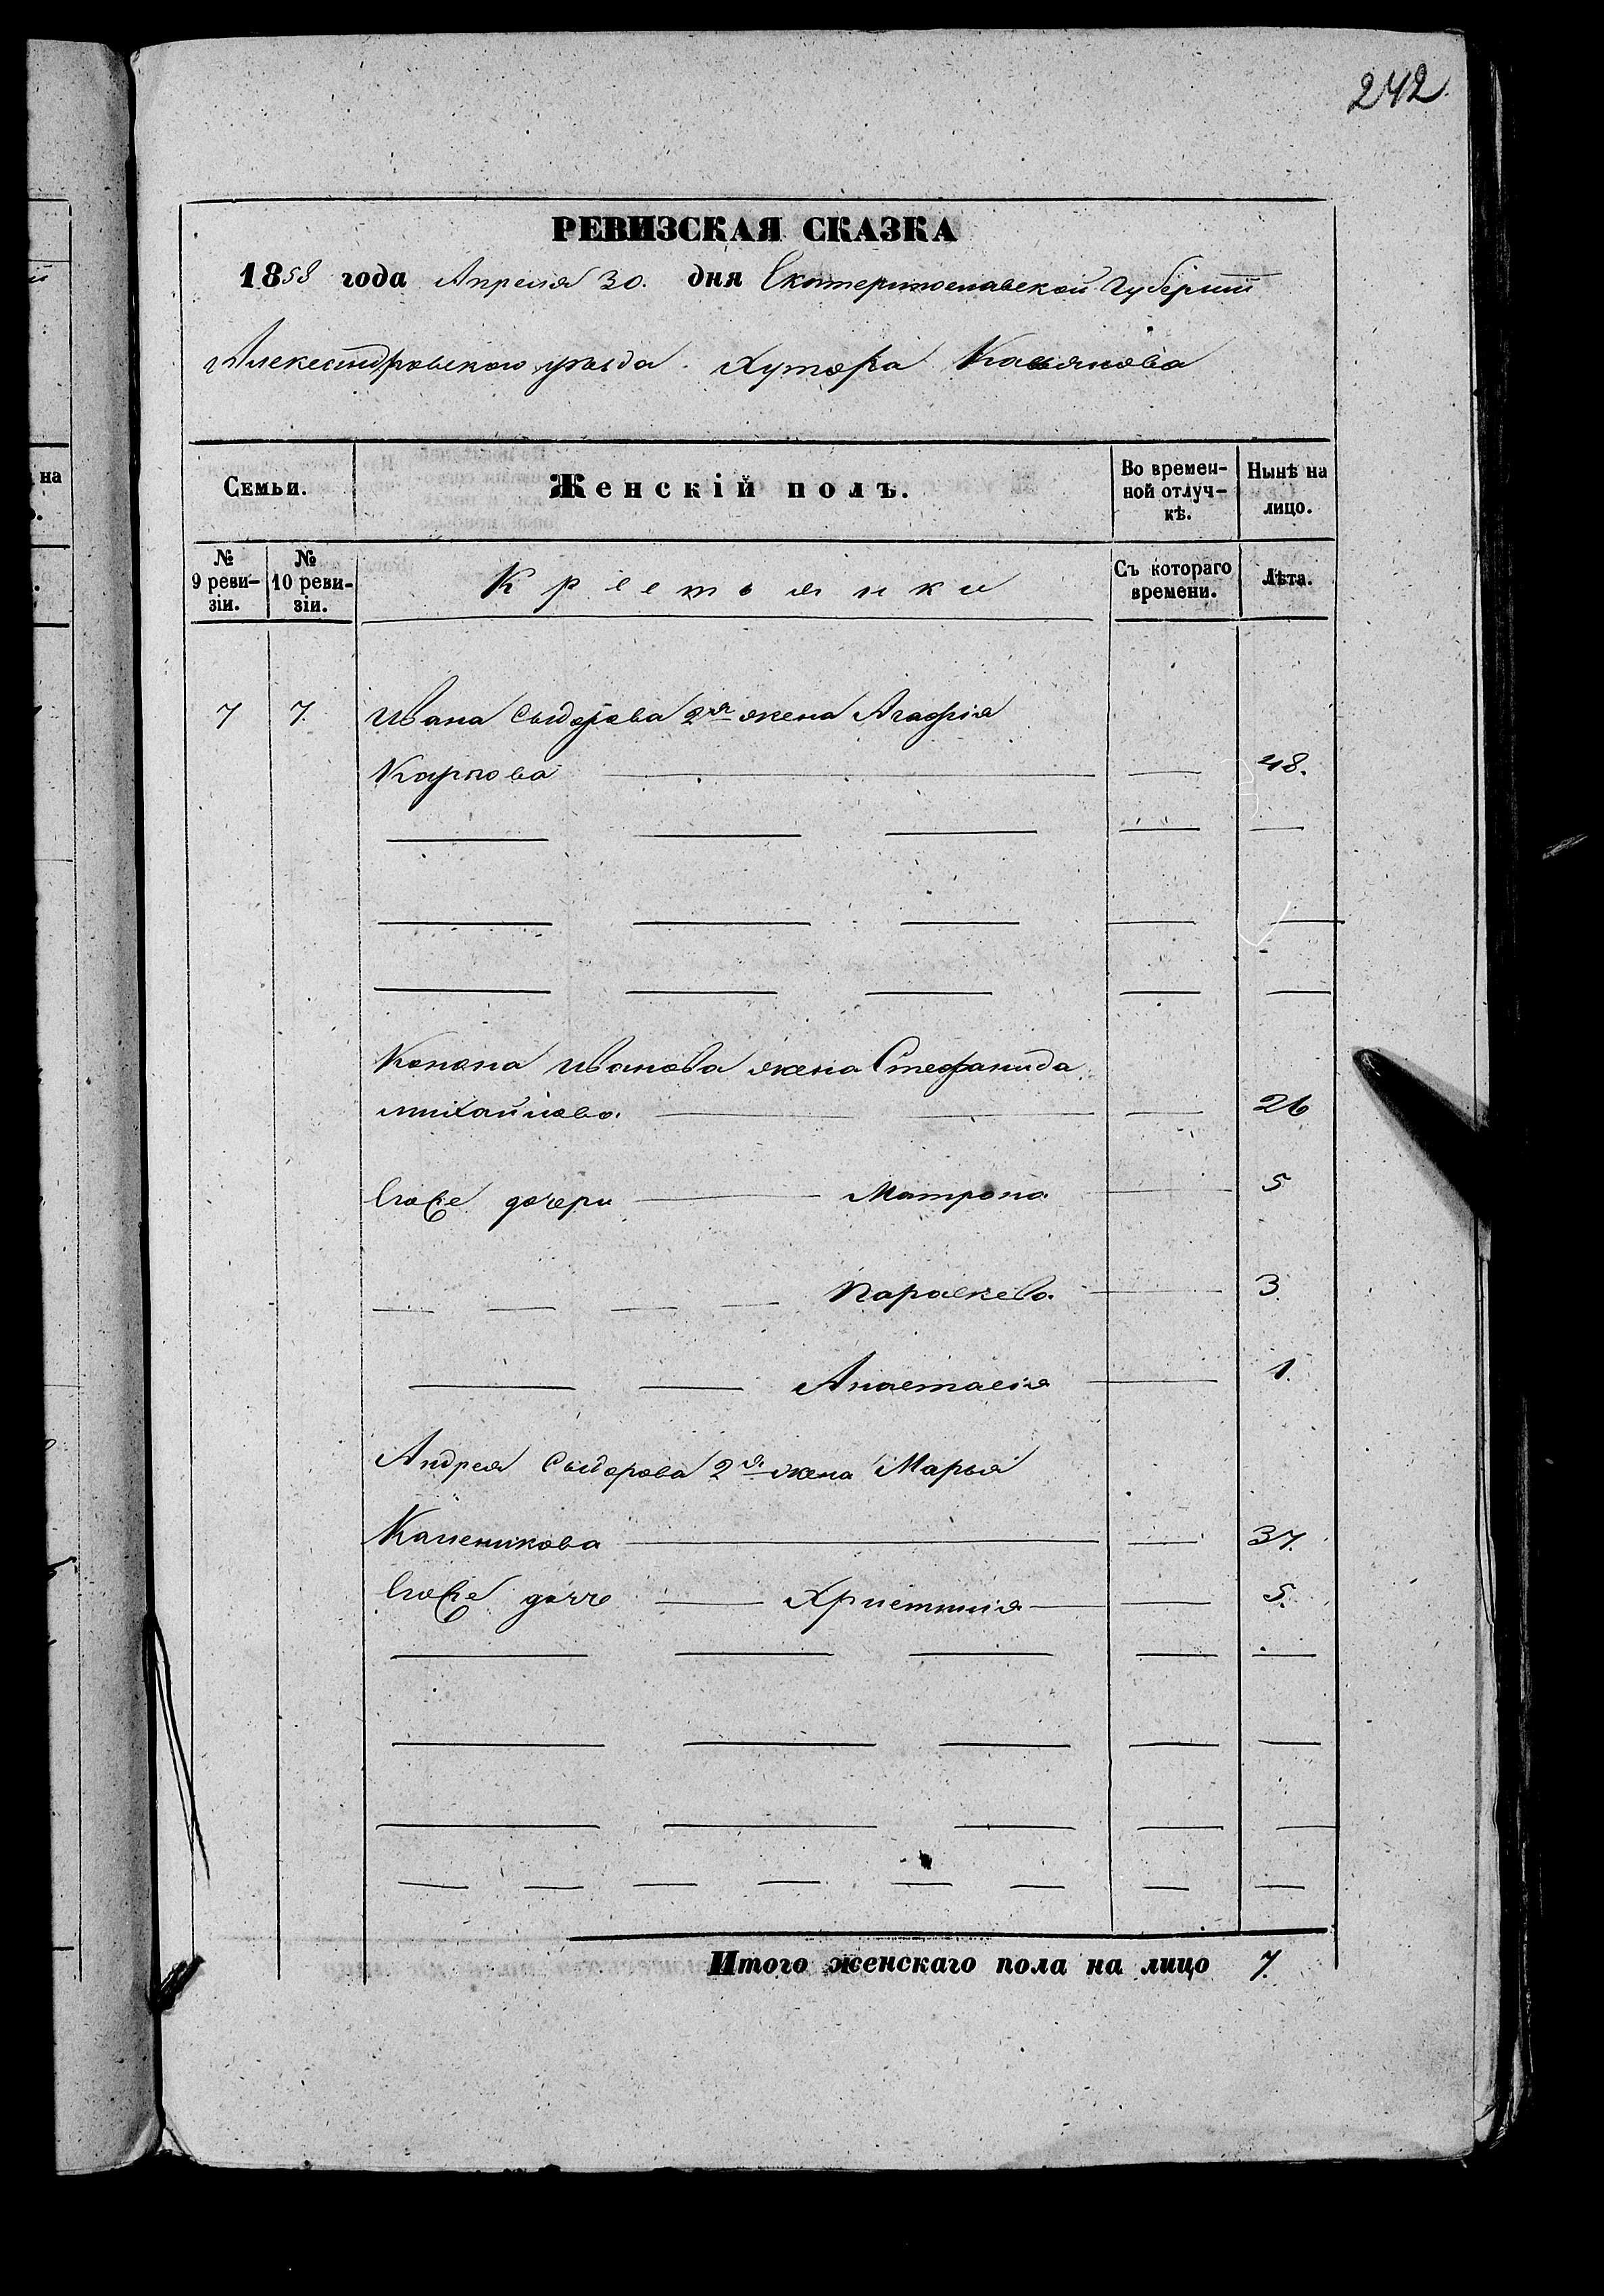 242.
РЕВИЗСКАЯ СКАЗКА
1858 года Апреля 30. дня Екатеринославской Губернии
Александровского уезда. Хутора Касьянова
на
Семьи.
Женскій полъ.
Во времен-
ной отлуч-
кѣ.
Нынѣ на
лицо.
№
9 реви-
зіи.
№
10 реви-
зіи.
Крестьянки
Съ котораго
времени.
Лѣта.
7 7. Ивана Сыдорова 2я жена Агафія
Карпова 48.
Конона Иванова жена Стефанида
Михайлова. 26
Его же дочери Матрона 5
Параскева. 3.
Анастасія 1.
Андрея Сыдорова 2я жена Марья
Каленикова 37.
Его же дочь Христинія 5.
Итого женскаго пола на лицо 7.